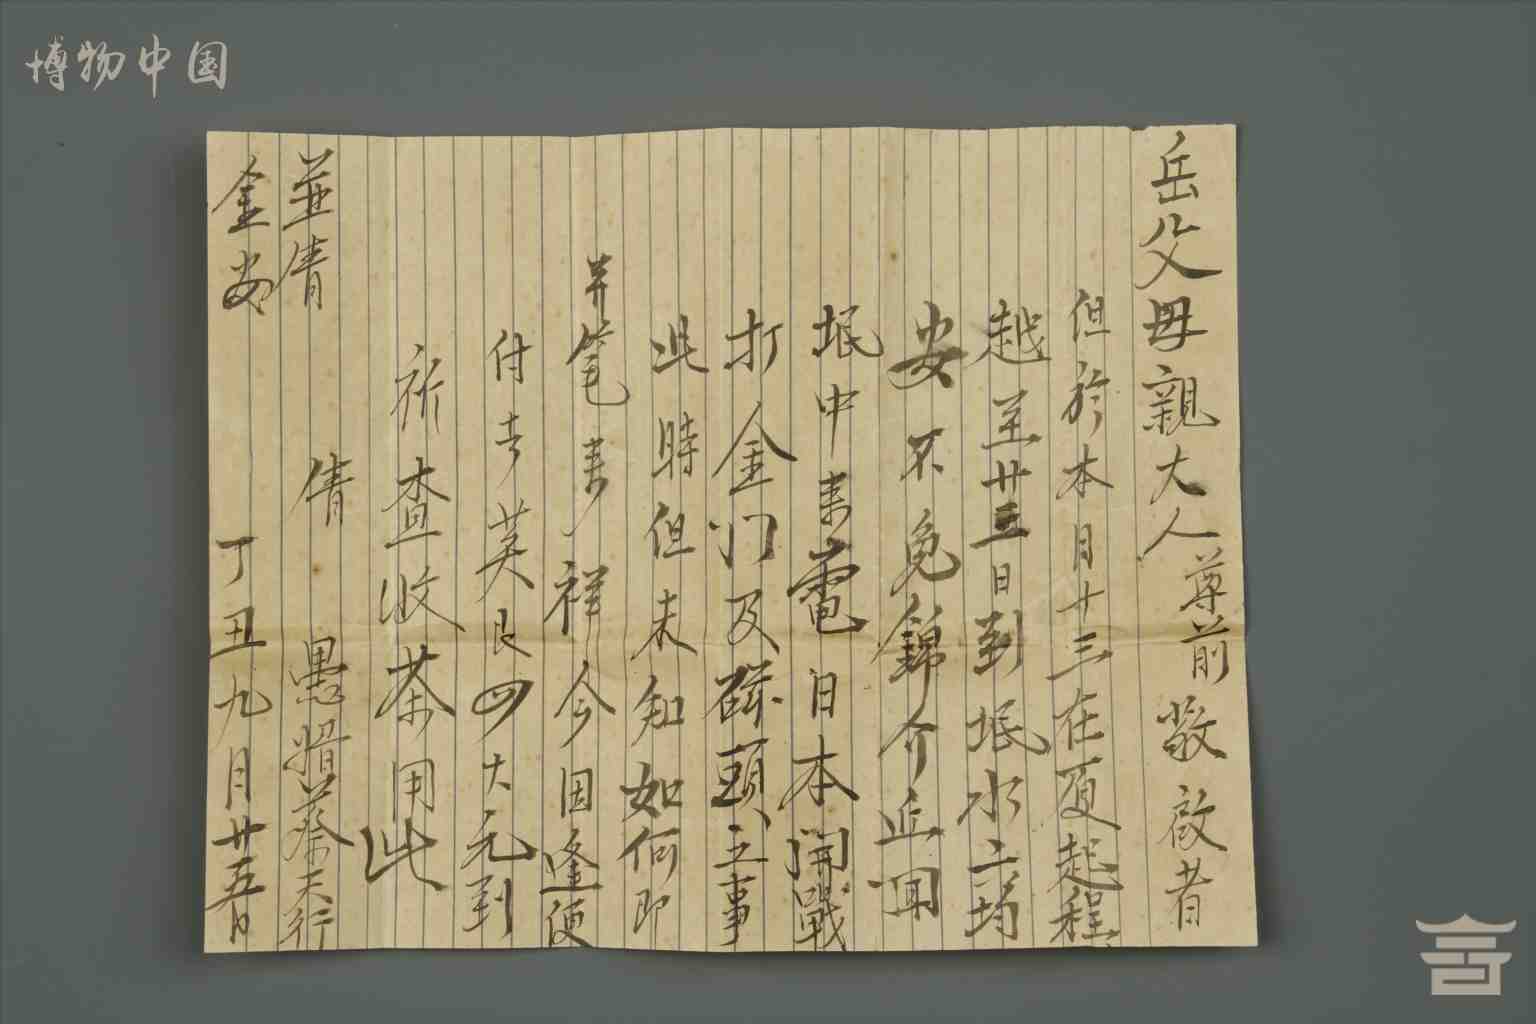 博物中国
岳父母親大人尊前敬啟者
但於本月十三在厦起程
越至廿三日到垊水土均
安不免錦介近聞
垊中来電日本開戰
打金门及碌頭之事
况时但未知如何即
并笔来祥今因逢便
付去英艮四大元到
祈查收茶用此
並倩
倩 愚婿蔡天行
金安 丁丑九月廿五日